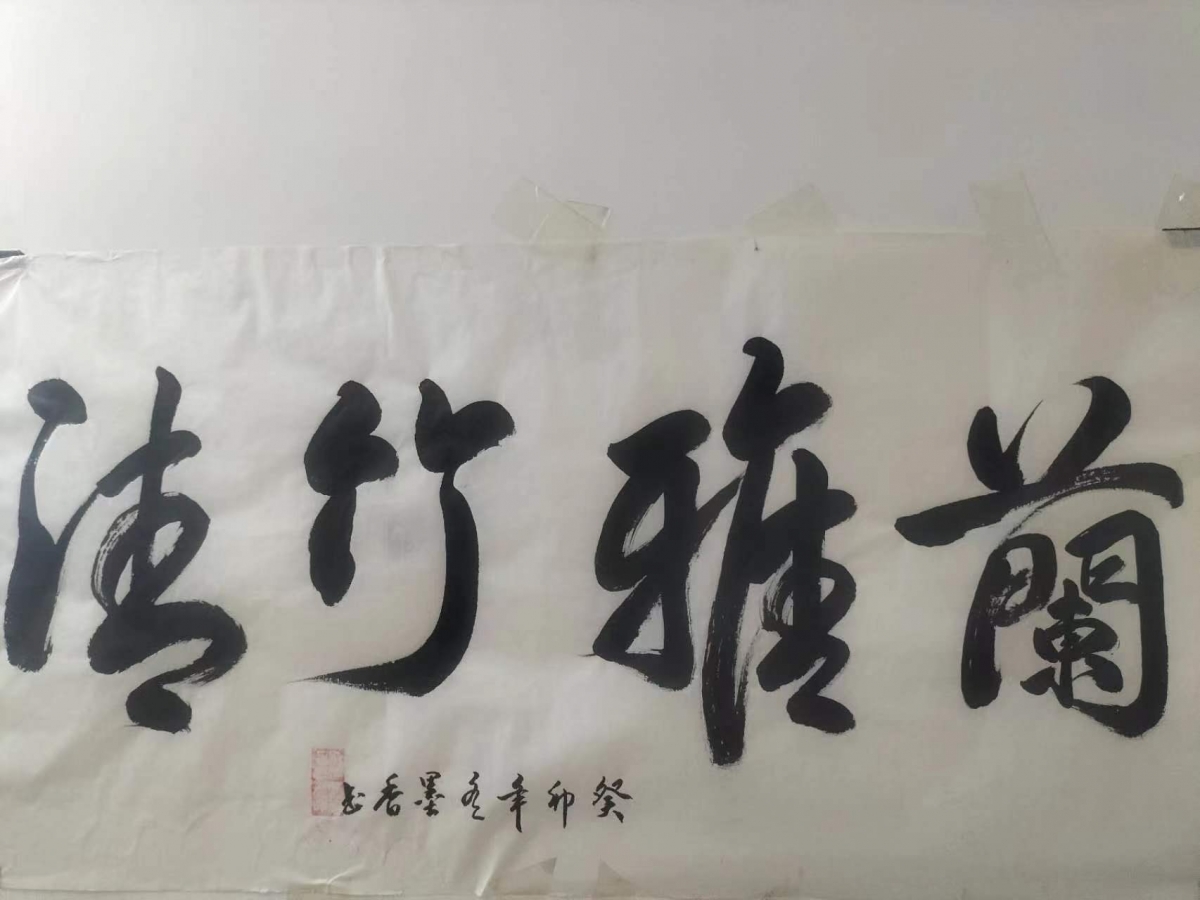 蘭雅竹清
癸卯年冬墨香书